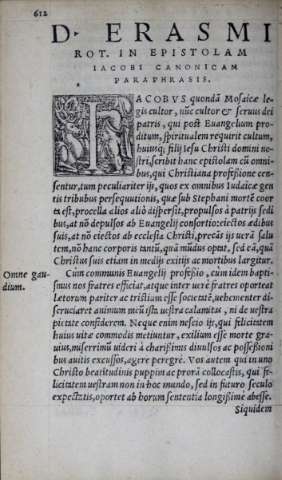 612
D. ERASMI
ROT. IN EPISTOLAM
IACOBI CANONICAM
PARAPHRASIS.
IACOBVS quondã Mosaicæ le-
gis cultor, nũc cultor & seruus dei
patris, qui post Euangelium pro-
ditum, spiritualem requirit cultum,
huiusq; filij Iesu Christi domini no-
stri, scribit hanc epistolam cũ omni-
bus, qui Christiana professione cen-
sentur, tum peculiariter ijs, quos ex omnibus Iudaicæ gen
tis tribubus persequutionis, quæ sub Stephani morte coor
ta est, procella alios aliò dispersit, propulsos à patrijs sedi
bus, at nõ depulsos ab Euangelij consortio: eiectos ædibus
suis, at nõ eiectos ab ecclesia Christi, precãs ijs uerã salu
tem, nõ hanc corporis tantũ, quã mũdus optat, sed eã, quã
Christus suis etiam in medijs exitijs ac mortibus largitur.
Omne gau-
dium.
Cùm communis Euangelij professio, cùm idem baptis-
mus nos fratres efficiat, atque inter uerè fratres oporteat
lætorum pariter ac tristium esse societatẽ, uehementer di-
scruciaret animum meũ ista uestra calamitas, ni de uestra
pietate confiderem. Neque enim nescio ijs, qui felicitatem
huius uitæ commodis metiuntur, exilium esse morte gra-
uius, miserrimũ uideri à charissimis diuulsos ac possessioni
bus auitis excussos, agere peregrè. Vos autem qui in uno
Christo beatitudinis puppim ac prorã collocastis, qui fe-
licitatem uestram non in hoc mundo, sed in futuro seculo
expectatis, oportet ab horum sententia longissimè abesse.
Siquidem